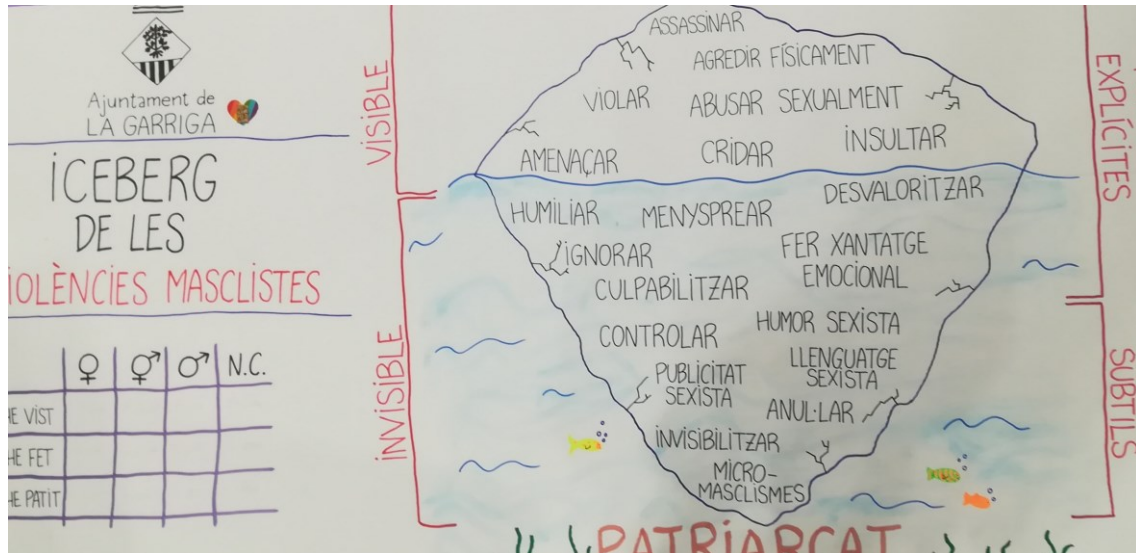 Ajuntament de
LA GARRIGA
ICEBERG
DE LES
VIOLÈNCIES MASCLISTES
♀ ⚥ ♂ N.C.
HE VIST
HE FET
HE PATIT
VISIBLE
INVISIBLE
ASSASSINAR
AGREDIR FÍSICAMENT
VIOLAR
ABUSAR SEXUALMENT
AMENAÇAR
CRIDAR
INSULTAR
DESVALORITZAR
HUMILIAR
MENYSPREAR
IGNORAR
FER XANTATGE
EMOCIONAL
CULPABILITZAR
CONTROLAR
HUMOR SEXISTA
LLENGUATGE
SEXISTA
PUBLICITAT
SEXISTA
ANUL·LAR
INVISIBILITZAR
MICRO-
MASCLISMES
PATRIARCAT
EXPLÍCITES
SUBTILS